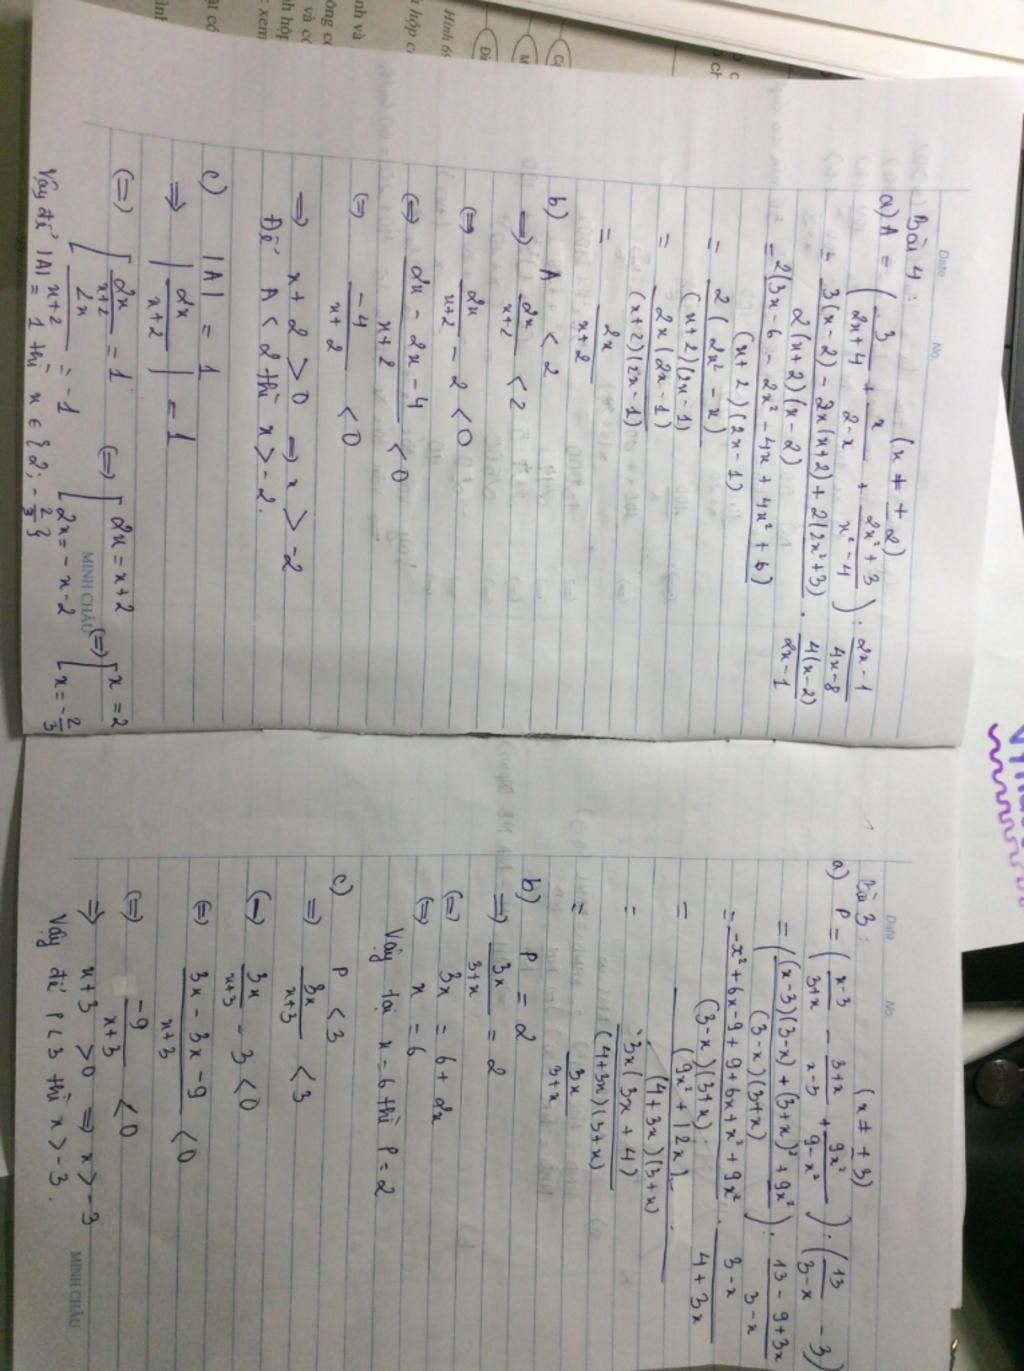 Date No.
Bài 4 : (x ≠ ± 2)
a) A = ( 3/(2x+4) + x/(2-x) + (2x²+3)/(x²-4) ) : (2x-1)/(4x-8)
= (3(x-2) - 2x(x+2) + 2(2x²+3))/(2(x+2)(x-2)) . 4(x-2)/(2x-1)
= 2(3x-6 - 2x² - 4x + 4x² + 6)/((x+2)(2x-1))
= 2(2x² - x)/((x+2)(2x-1))
= 2x(2x-1)/((x+2)(2x-1))
= 2x/(x+2)
b) A < 2
=> 2x/(x+2) < 2
(=) 2x/(x+2) - 2 < 0
(=) (2x - 2x - 4)/(x+2) < 0
(=) -4/(x+2) < 0
=> x + 2 > 0 => x > -2
Để A < 2 thì x > -2.
c) |A| = 1
=> | 2x/(x+2) | = 1
(=) [ 2x/(x+2) = 1 (=) [ 2x = x+2 (=) [ x = 2
[ 2x/(x+2) = -1 [ 2x = -x-2 [ x = -2/3
Vậy để |A| = 1 thì x ∈ {2; -2/3}
MINH CHÂU
Date No.
Bài 3 : (x ≠ ± 3)
a) P = ( (x-3)/(3+x) - (3+x)/(x-3) + 9x²/(9-x²) ) : ( 13/(3-x) - 3 )
= ( ((x-3)(3-x) + (3+x)² + 9x²)/((3-x)(3+x)) ) : (13 - 9 + 3x)/(3-x)
= (-x² + 6x - 9 + 9 + 6x + x² + 9x²)/((3-x)(3+x)) . (3-x)/(4+3x)
= (9x² + 12x)/((4+3x)(3+x))
= 3x(3x+4)/((4+3x)(3+x))
= 3x/(3+x)
b) P = 2
=> 3x/(3+x) = 2
(=) 3x = 6 + 2x
(=) x = 6
Vậy tại x = 6 thì P = 2
c) P < 3
=> 3x/(x+3) < 3
(=) 3x/(x+3) - 3 < 0
(=) (3x - 3x - 9)/(x+3) < 0
(=) -9/(x+3) < 0
=> x+3 > 0 => x > -3
Vậy để P < 3 thì x > -3.
MINH CHÂU